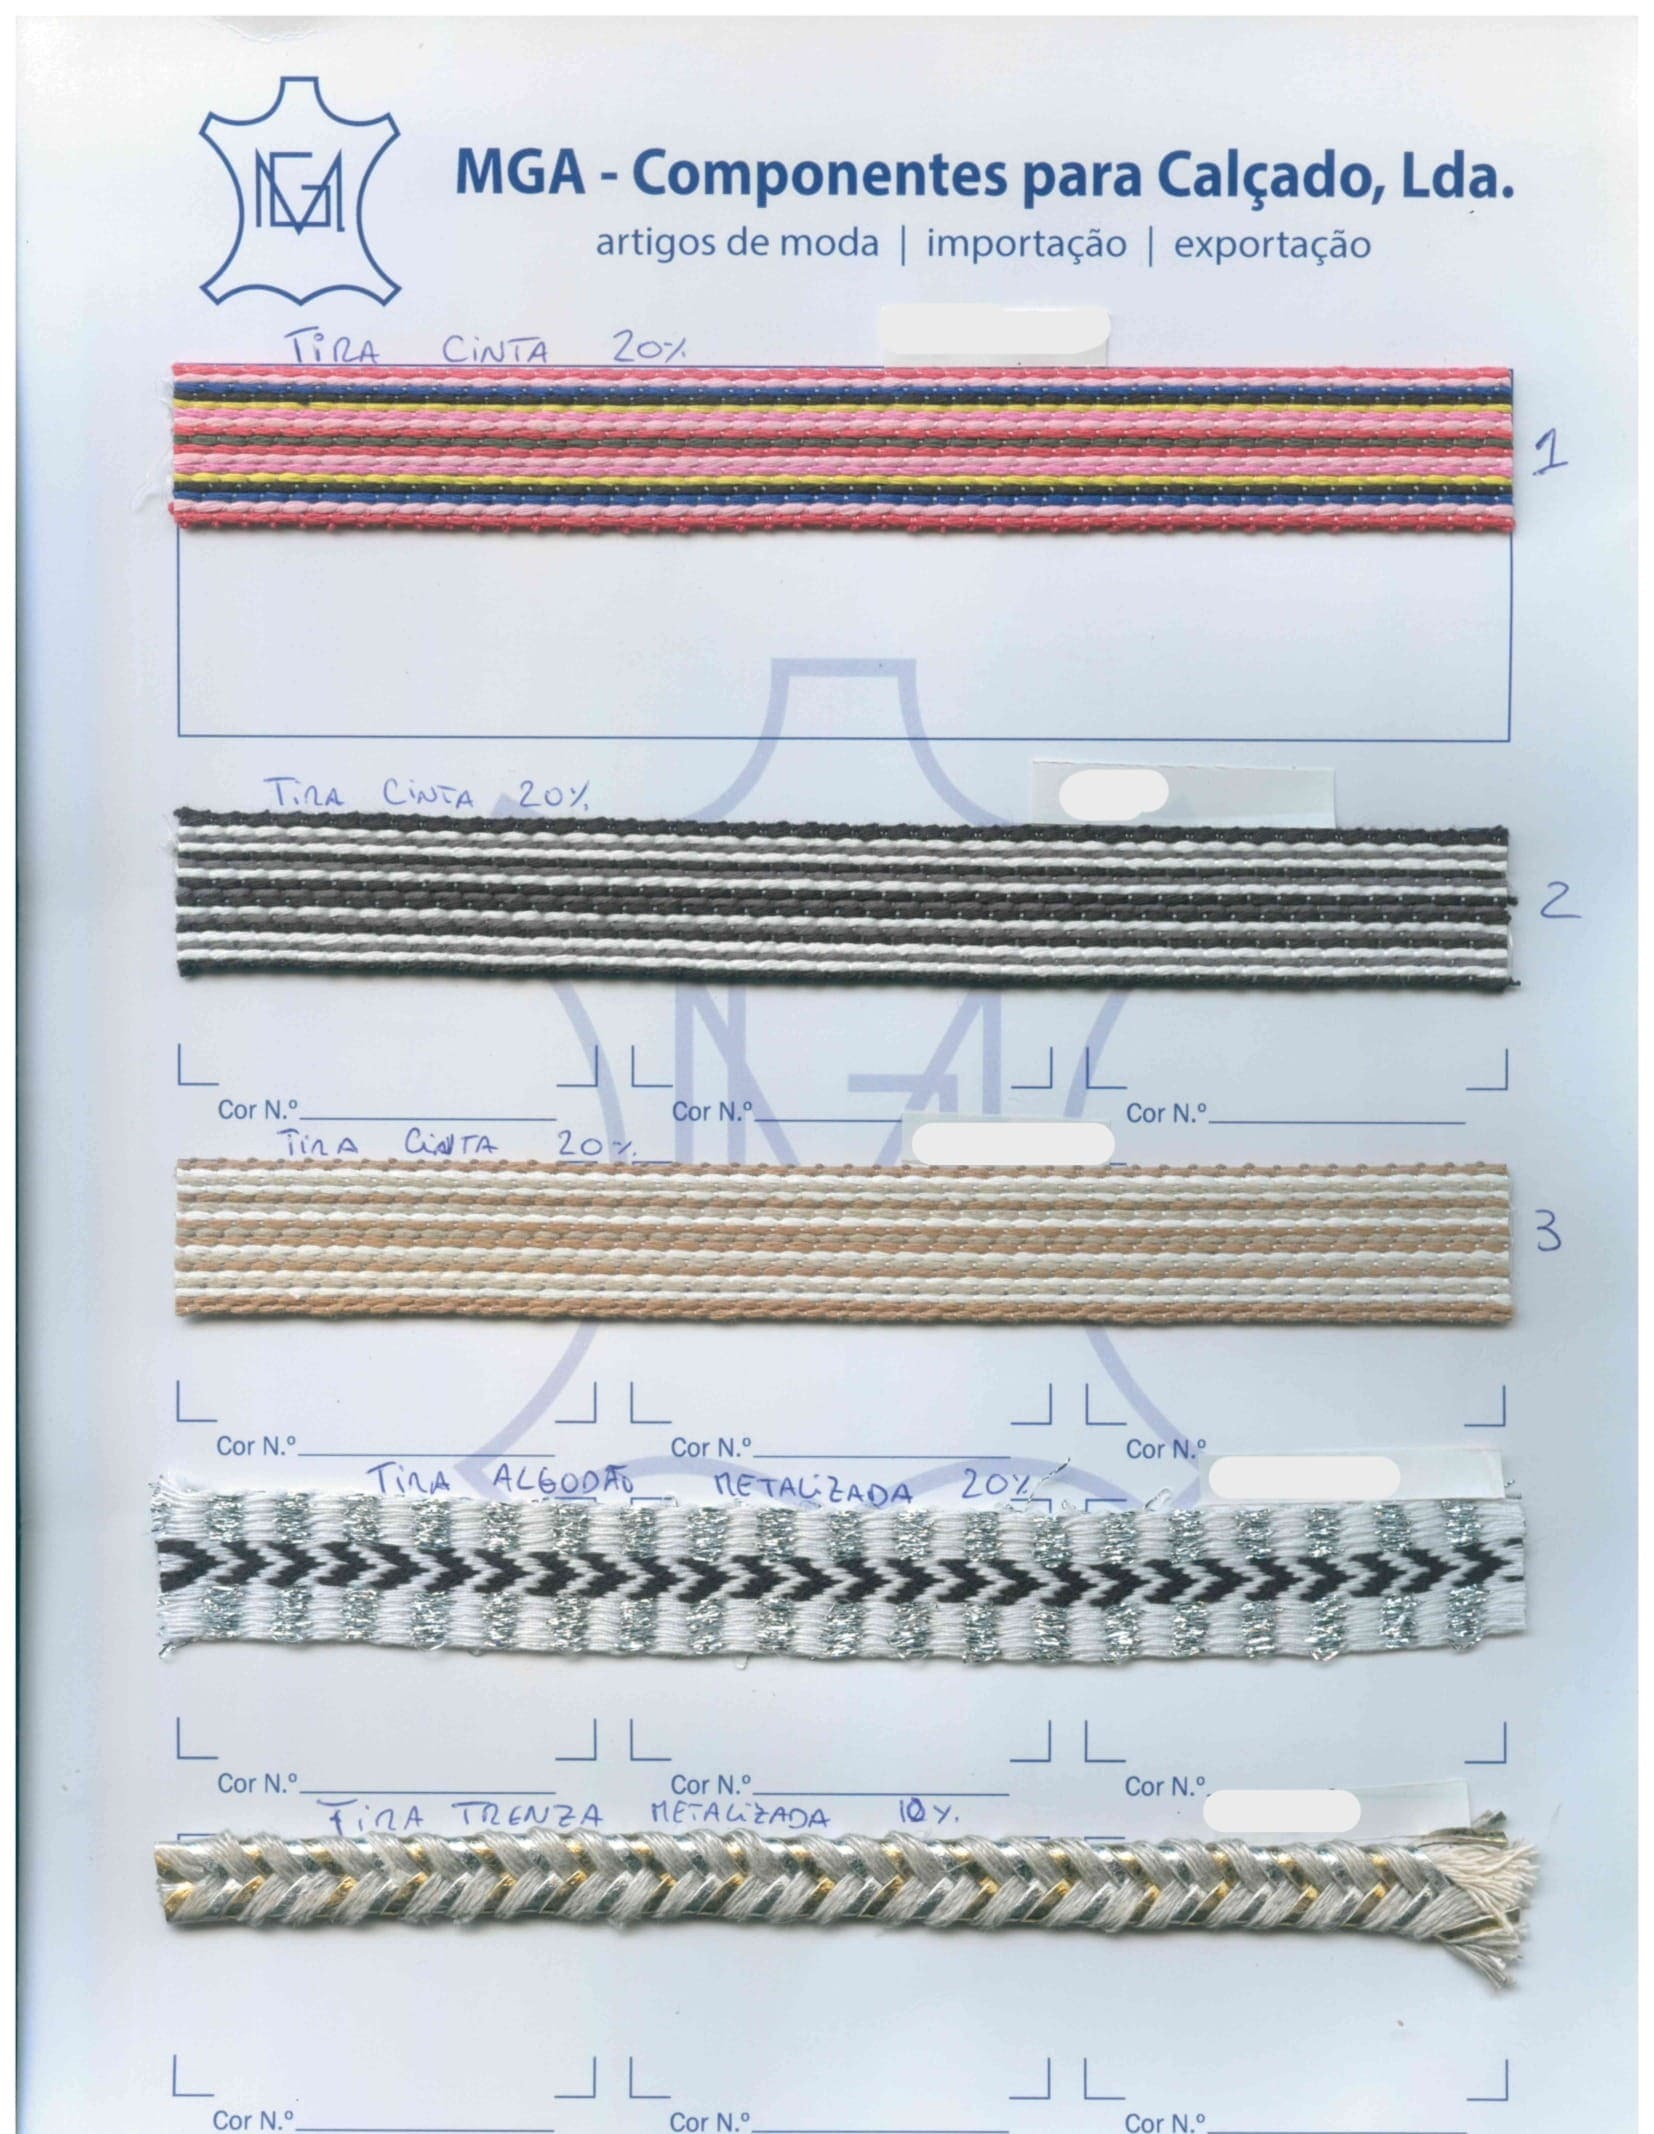 MGA
MGA - Componentes para Calçado, Lda.
artigos de moda | importação | exportação
TIRA CINTA 20%
1
TIRA CINTA 20%
2
Cor N.º Cor N.º Cor N.º
TIRA CINTA 20%
3
Cor N.º Cor N.º Cor N.º
TIRA ALGODÃO METALIZADA 20%
Cor N.º Cor N.º Cor N.º
TIRA TRENZA METALIZADA 10%
Cor N.º Cor N.º Cor N.º